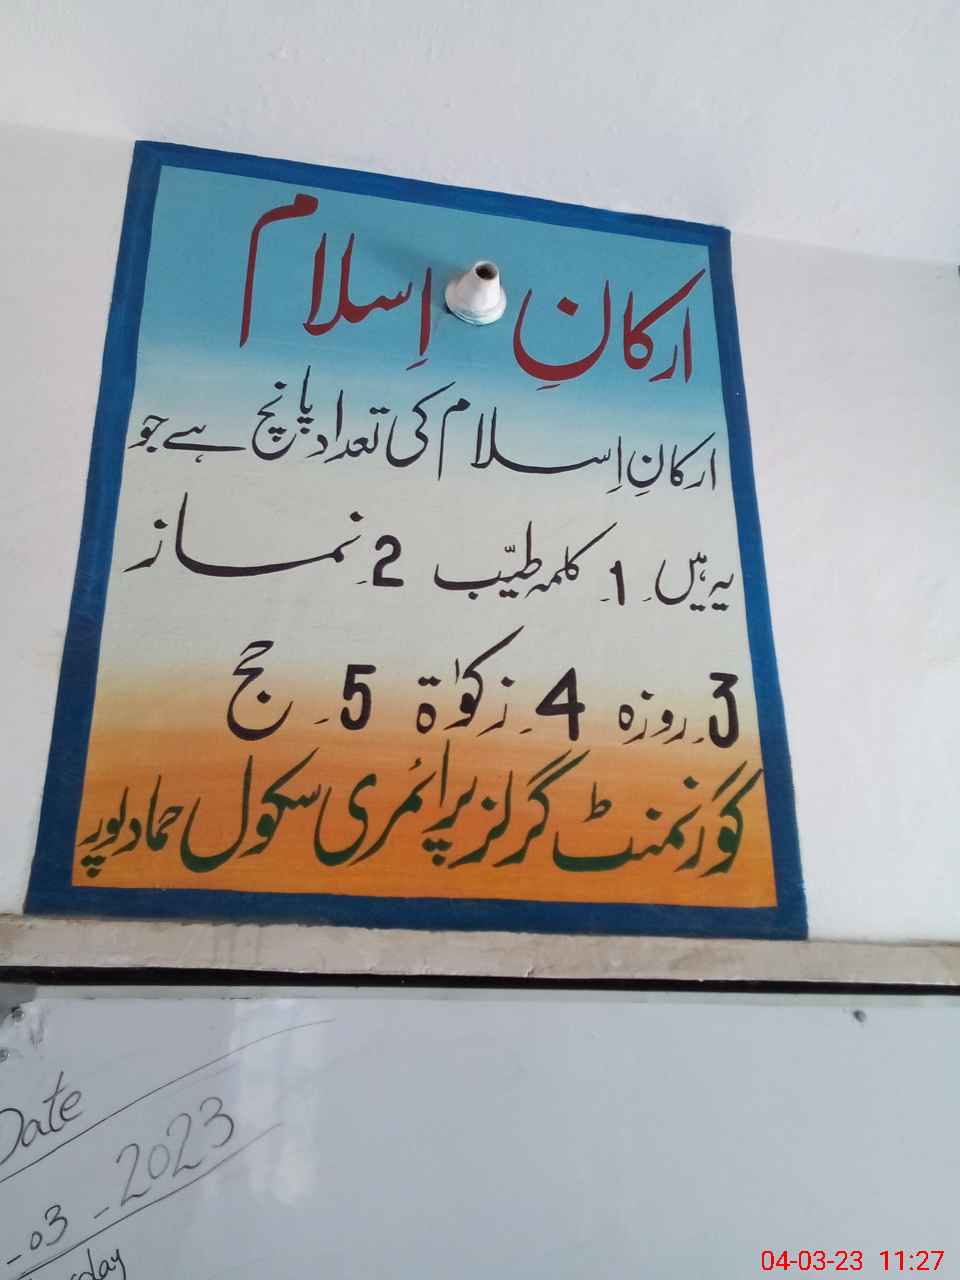 ارکانِ اِسلام
ارکانِ اِسلام کی تعداد پانچ ہے جو
یہ ہیں۔ 1۔ کلمہ طیّب 2۔ نماز
3۔ روزہ 4۔ زکوٰة 5۔ حج
گورَنمنٹ گرلز پرائمری سکول حمادپور
Date
-03-2023
04-03-23 11:27